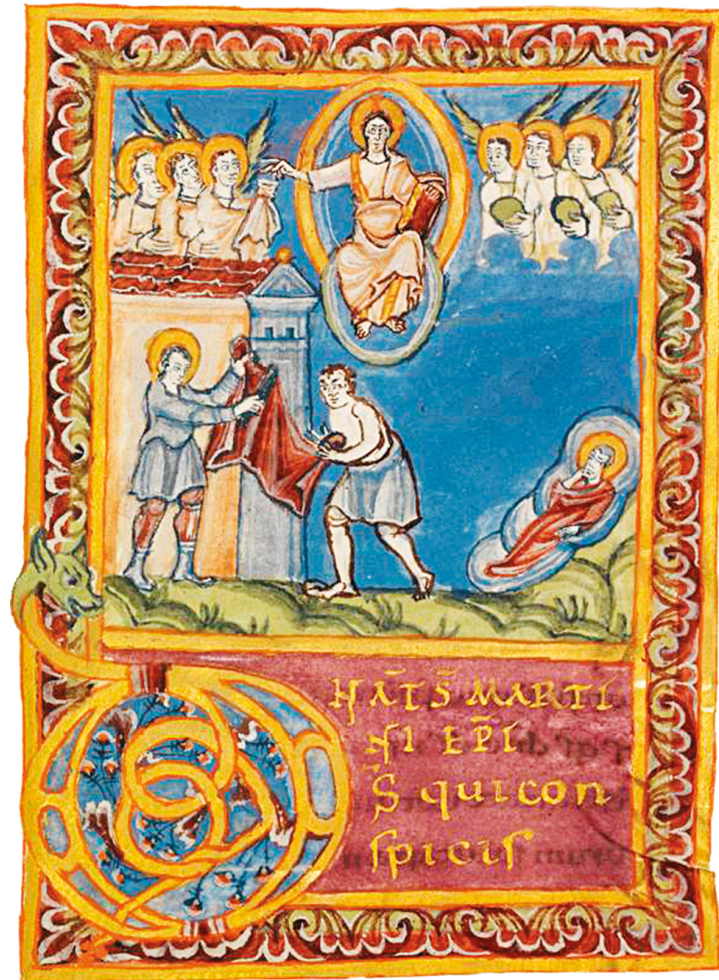 NĀT S̄ MARTI
NI EP̄I
DS̄ quicon
spicis